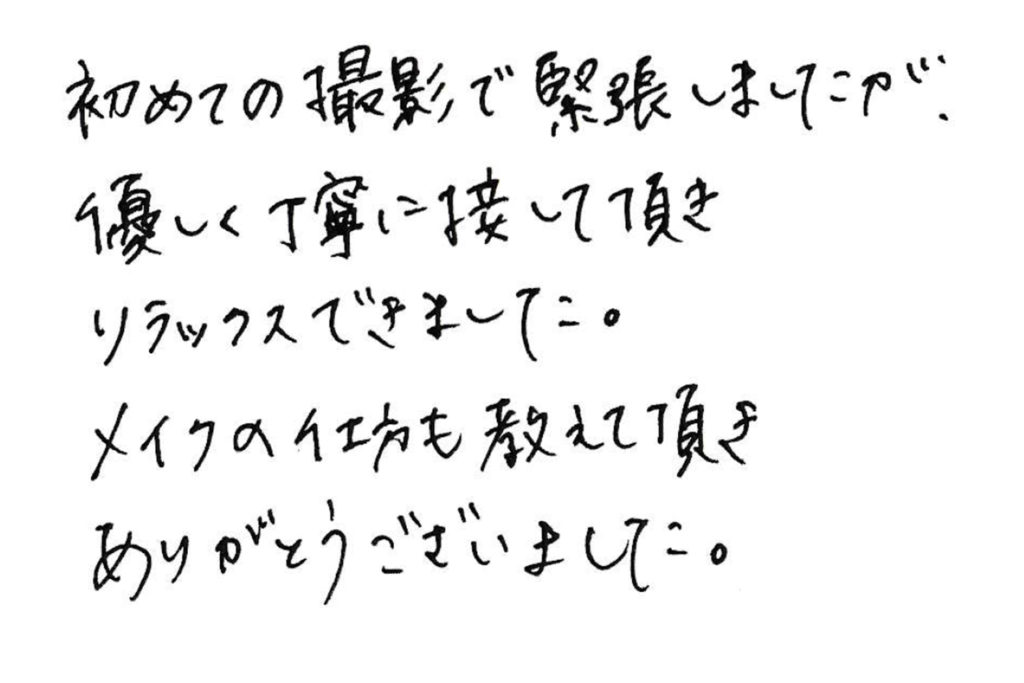 初めての撮影で緊張しましたが、
優しく丁寧に接して頂き
リラックスできました。
メイクの仕方も教えて頂き
ありがとうございました。